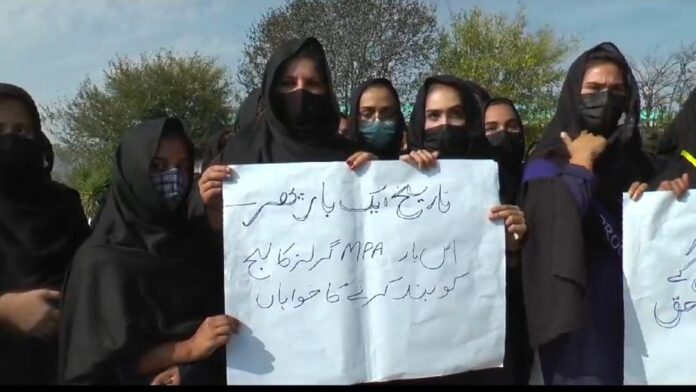 تاریخ ایک بار پھر —
اس بار MPA گرلز کالج
کو بند کرنے کا خواہاں
کے
حق